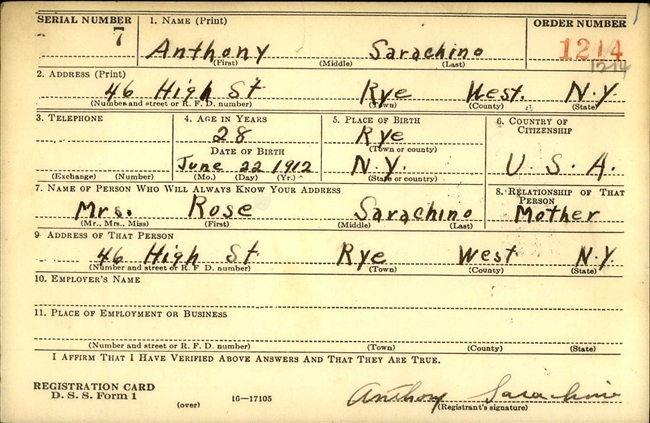 SERIAL NUMBER 1. NAME (Print) ORDER NUMBER
7 Anthony Sarachino 1214
(First) (Middle) (Last) 1214
2. ADDRESS (Print)
46 High St Rye West. N.Y
(Number and street or R. F. D. number) (Town) (County) (State)
3. TELEPHONE 4. AGE IN YEARS 5. PLACE OF BIRTH 6. COUNTRY OF CITIZENSHIP
28 Rye
DATE OF BIRTH (Town or county)
June 22 1912 N.Y. U.S.A.
(Exchange) (Number) (Mo.) (Day) (Yr.) (State or country)
7. NAME OF PERSON WHO WILL ALWAYS KNOW YOUR ADDRESS 8. RELATIONSHIP OF THAT PERSON
Mrs. Rose Sarachino Mother
(Mr., Mrs., Miss) (First) (Middle) (Last)
9 ADDRESS OF THAT PERSON
46 High St Rye West N.Y
(Number and street or R. F. D. number) (Town) (County) (State)
10. EMPLOYER'S NAME
11. PLACE OF EMPLOYMENT OR BUSINESS
(Number and street or R. F. D. number) (Town) (County) (State)
I AFFIRM THAT I HAVE VERIFIED ABOVE ANSWERS AND THAT THEY ARE TRUE.
REGISTRATION CARD
D. S. S. Form 1 (over) 16—17105 Anthony Sarachino
(Registrant's signature)